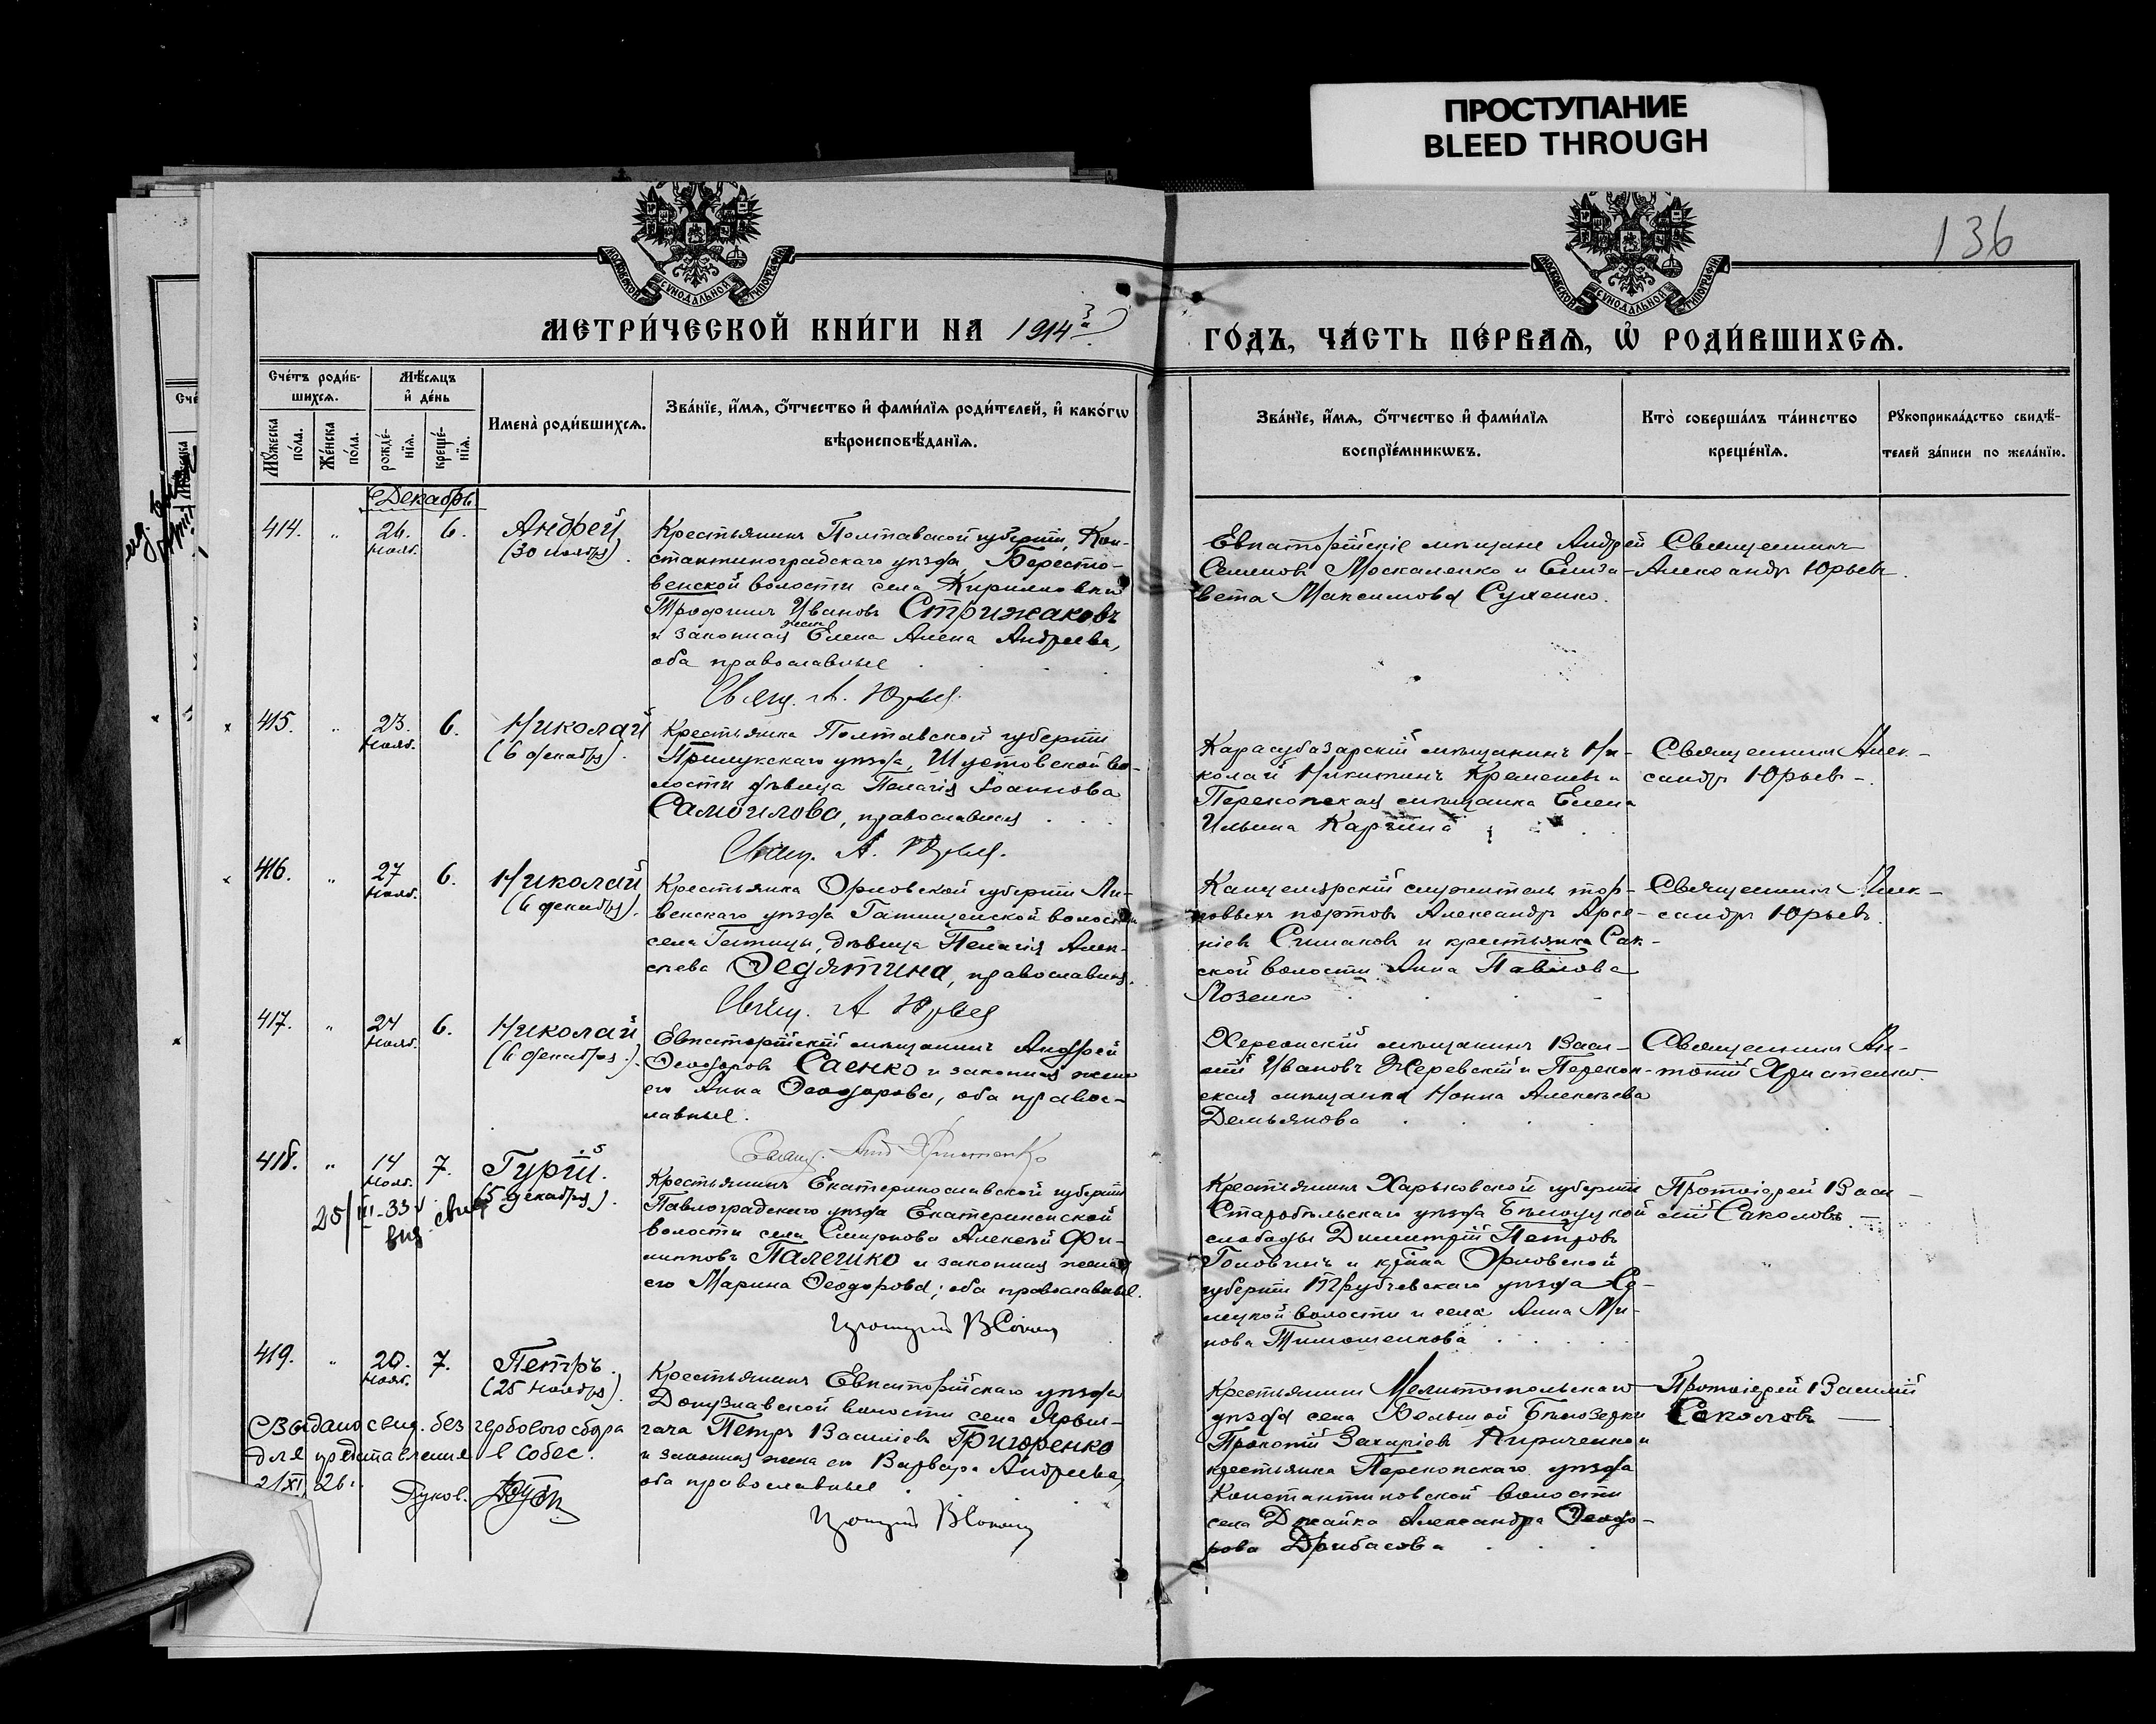 ПРОСТУПАНИЕ
BLEED THROUGH
136
МОСКОВСКОЙ СѴНОДАЛЬНОЙ ТИПОГРАФІИ
МОСКОВСКОЙ СѴНОДАЛЬНОЙ ТИПОГРАФІИ
МЕТРИ́ЧЕСКОЙ КНИ́ГИ НА 1914
ГО́ДЪ, ЧА́СТЬ ПЕ́РВАѦ, Ѡ҆ РОДИ́ВШИХСѦ.
Сче́тъ роди́в-
шихсѧ.
Мѣ́сѧцъ
и҆ де́нь
Мꙋ́жеска
по́ла.
Же́нска
по́ла.
рожде́-
нїѧ.
креще́-
нїѧ.
Имена̀ роди́вшихсѧ.
Зва́нїе, и҆́мѧ, ѻ҆́тчество и҆ фами́лїѧ роди́телей, и҆ како́гѡ
вѣроисповѣ́данїѧ.
Зва́нїе, и҆́мѧ, ѻ҆́тчество и҆ фами́лїѧ
воспрїе́мникѡвъ.
Кто̀ соверша́лъ та́инство
креще́нїѧ.
Рꙋкоприкла́дство свидѣ́-
телей за́писи по жела́нїю.
Декабрь
414. " 26. нояб. 6. Андрей
(30 ноября).
Крестьянинъ Полтавской губерніи, Кон-
стантиноградскаго уѣзда, Бересто-
венской волости села Кирилловки
Трофимъ Ивановъ Стрижаковъ
и законная жена Елена Андреева,
оба православные
Свящ. А. Юрьев.
Евпаторійскіе мѣщане Андрей
Семеновъ Москаленко и Елиза-
вета Максимова Сухенко.
Священникъ
Александръ Юрьевъ.
415. " 23. нояб. 6. Николай
(6 декабря).
Крестьянка Полтавской губерніи
Прилукскаго уѣзда, Шустовской во-
лости дѣвица Пелагія Іоаннова
Самойлова, православная
Свящ. А. Юрьев.
Карасубазарскій мѣщанинъ Ни-
колай Никитинъ Кременевъ и
Перекопская мѣщанка Елена
Ильина Каргина
Священникъ Алек-
сандръ Юрьевъ.
416. " 27 нояб. 6. Николай
(6 декабря).
Крестьянка Орловской губерніи Ли-
венскаго уѣзда волости
села дѣвица Пелагія Алек-
сѣева Ѳедятина, православная.
Свящ. А Юрьев
Канцелярскій служитель тор-
говыхъ портовъ Александръ Арсе-
ніевъ Симаковъ и крестьянка Сак-
ской волости Анна Павлова
Лозенко
Священникъ Алек-
сандръ Юрьевъ.
417. " 24 нояб. 6. Николай
(6 декабря).
Евпаторійскій мѣщанинъ Андрей
Ѳеодоровъ Саенко и законная жена
его Анна Ѳеодорова, оба правос-
лавные.
Свящ. Ант Христенко
Херсонскій мѣщанинъ Васи-
лій Ивановъ Жеревскій и Перекоп-
ская мѣщанка Нонна Алексѣева
Демьянова
Священникъ Ан-
тоній Христенко.
418. " 14 нояб. 7. Гурій.
(5 декабря).
25/III-33 г.
выд. свид
Крестьянинъ Екатеринославской губерніи
Павлоградскаго уѣзда Екатерининской
волости села Смирнова Алексѣй Фи-
липповъ Палешко и законная жена
его Марина Ѳеодорова; оба православные.
Крестьянинъ Харьковской губерніи
Старобѣльскаго уѣзда Бѣлуцкой
слободы Димитрій Петровъ
Головчинъ и кр-нка Орловской
губерніи Трубчевскаго уѣзда Се-
лецкой волости и села Анна Ми-
нова Тимошенкова
Протоіерей Васи-
лій Соколовъ.
419. " 20. нояб. 7. Петръ.
(25 ноября).
Выдано свид. без гербового сбора
для представления в Собес.
21/XI 26 г. Руков.
Крестьянинъ Евпаторійскаго уѣзда
Донузлавской волости села Ярыл-
гача Петръ Василіевъ Григоренко
и законная жена его Варвара Андреева,
оба православные
Крестьянинъ Мелитопольскаго
уѣзда села Большой Бѣлозерки
Прокопій Захаріевъ Кириченко и
крестьянка Перекопскаго уѣзда
Константиновской волости
села Джайка Александра Ѳеодо-
рова Дрибасова
Протоіерей Василій
Соколовъ